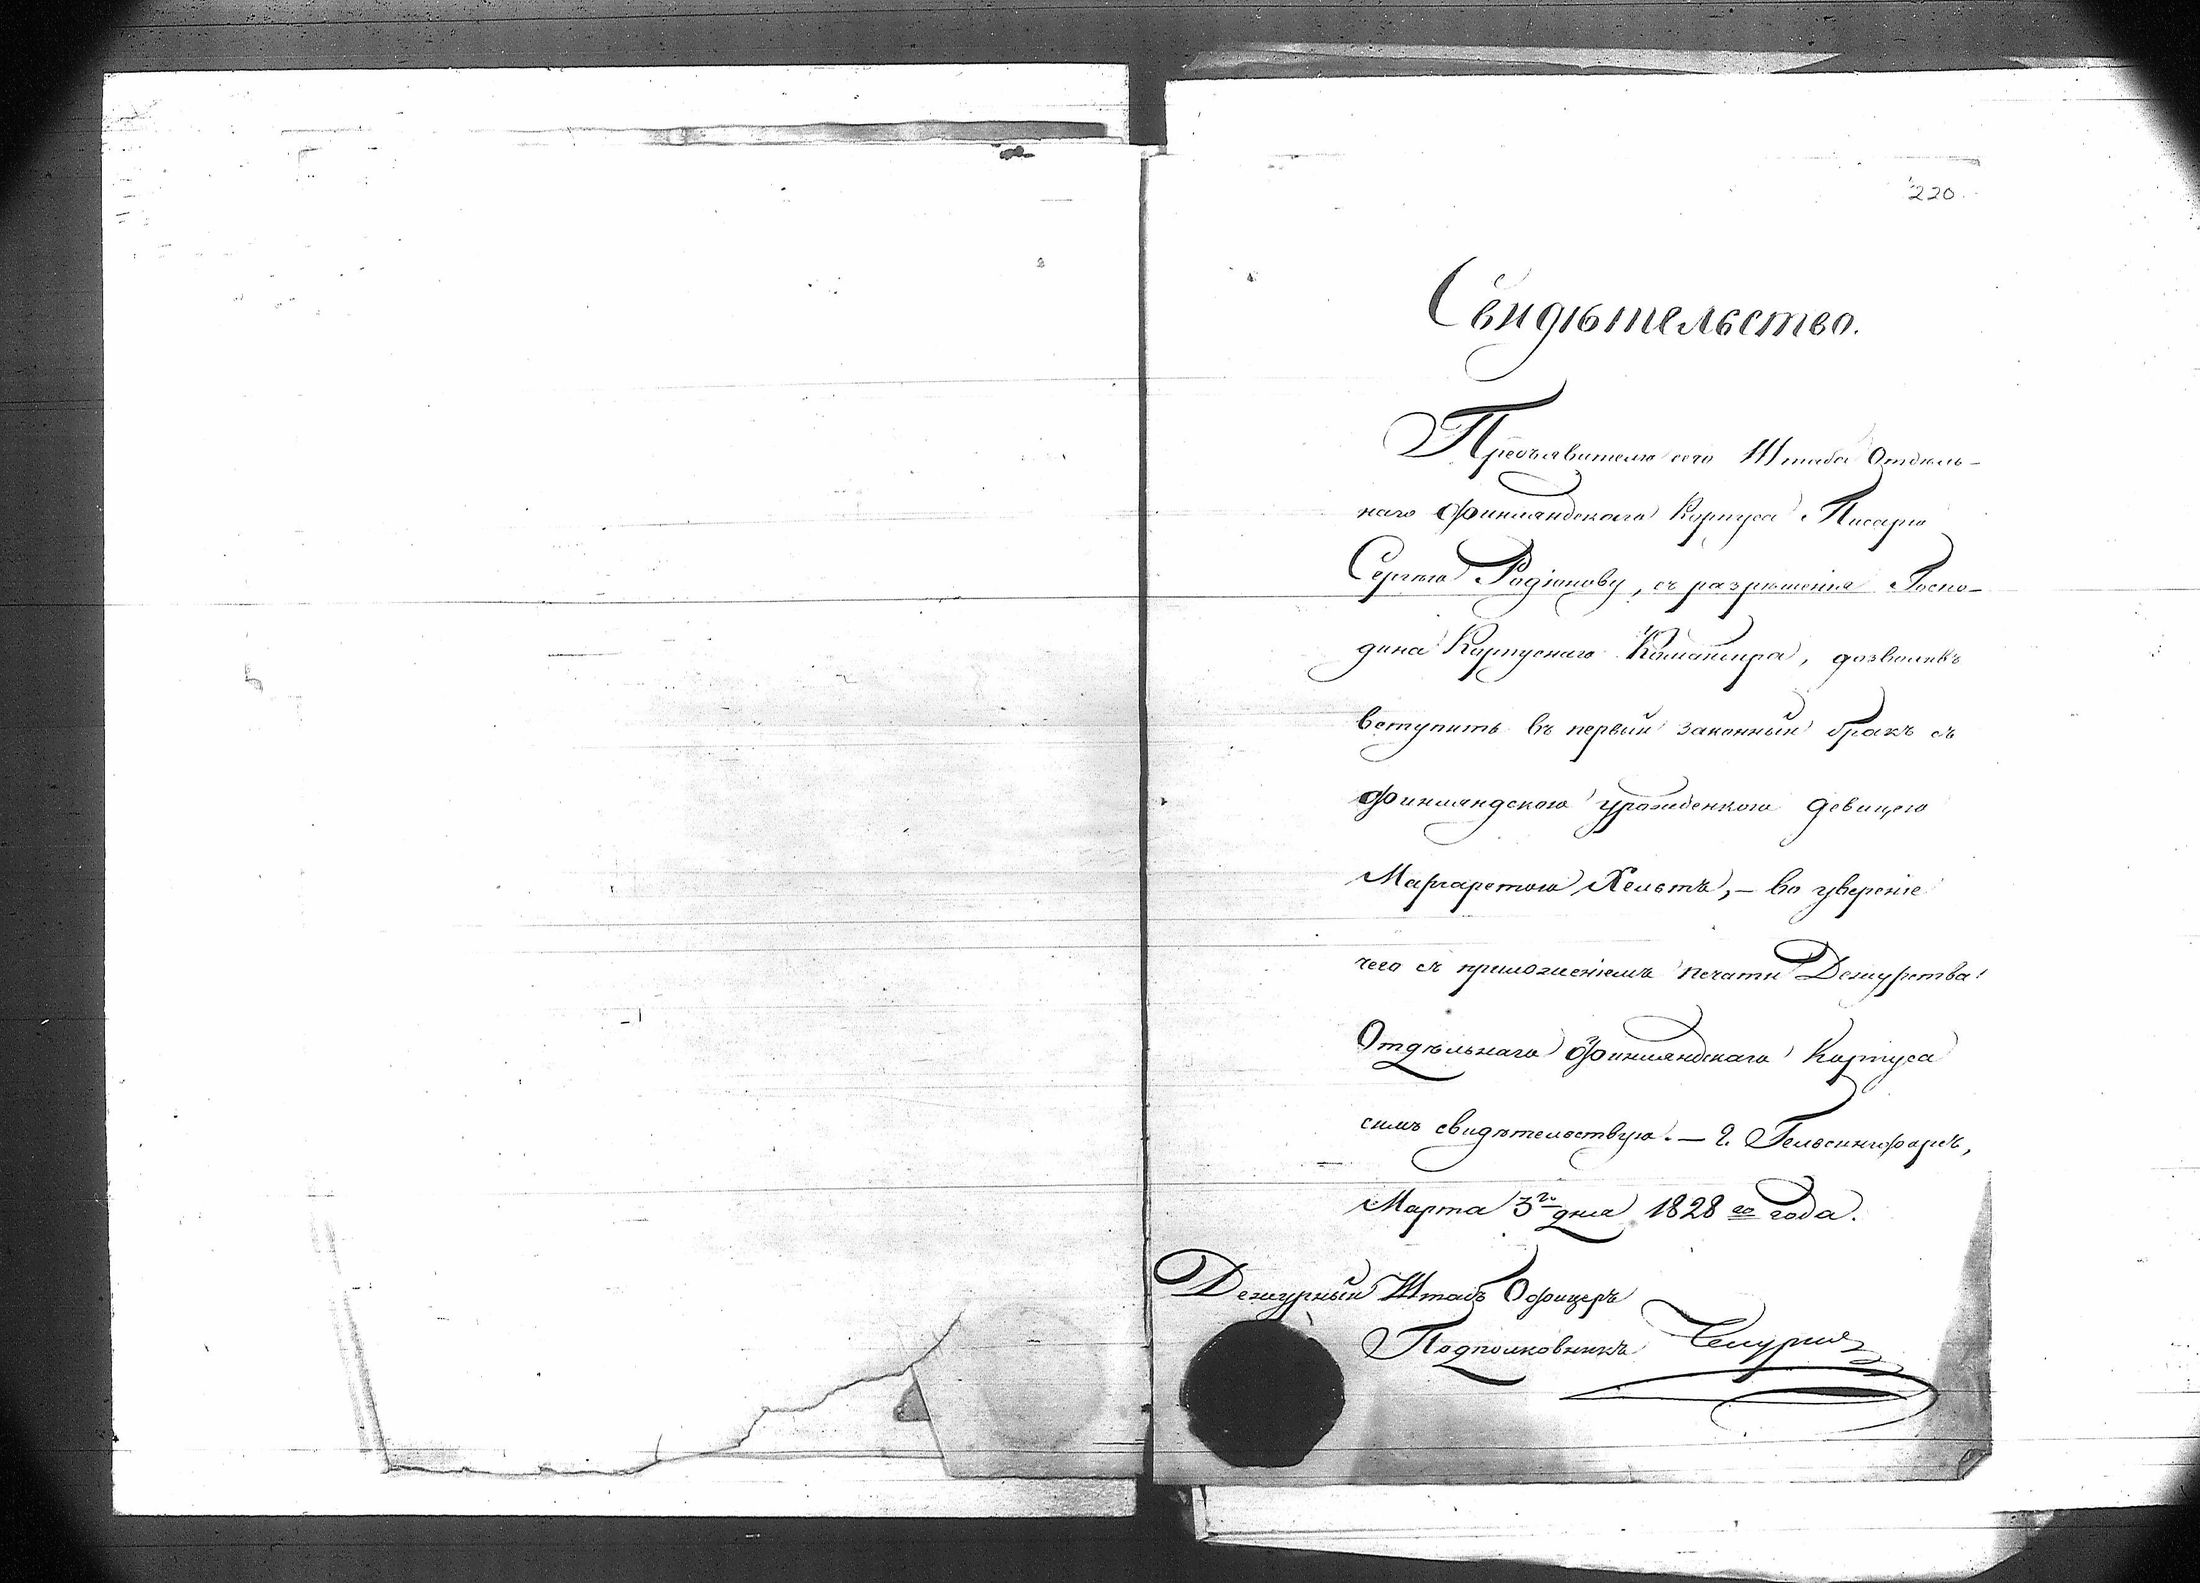 220.
Свидѣтельство.
Предъявителю сего Штаба Отдѣль-
наго Финляндскаго Корпуса Писарю
Сергѣю Родіонову, съ разрѣшенія Госпо-
дина Корпуснаго Командира, дозволенъ
вступить въ первый законный бракъ съ
Финляндскою уроженкою девицею
Маргаретою Хельтъ, – во увѣреніе
чего съ приложеніемъ печати Дежурства
Отдѣльнаго Финляндскаго Корпуса
симъ свидѣтельствую. – Г. Гельсингфорсъ,
Марта 3го дня 1828го года.
Дежурный Штабъ Офицеръ
Подполковникъ